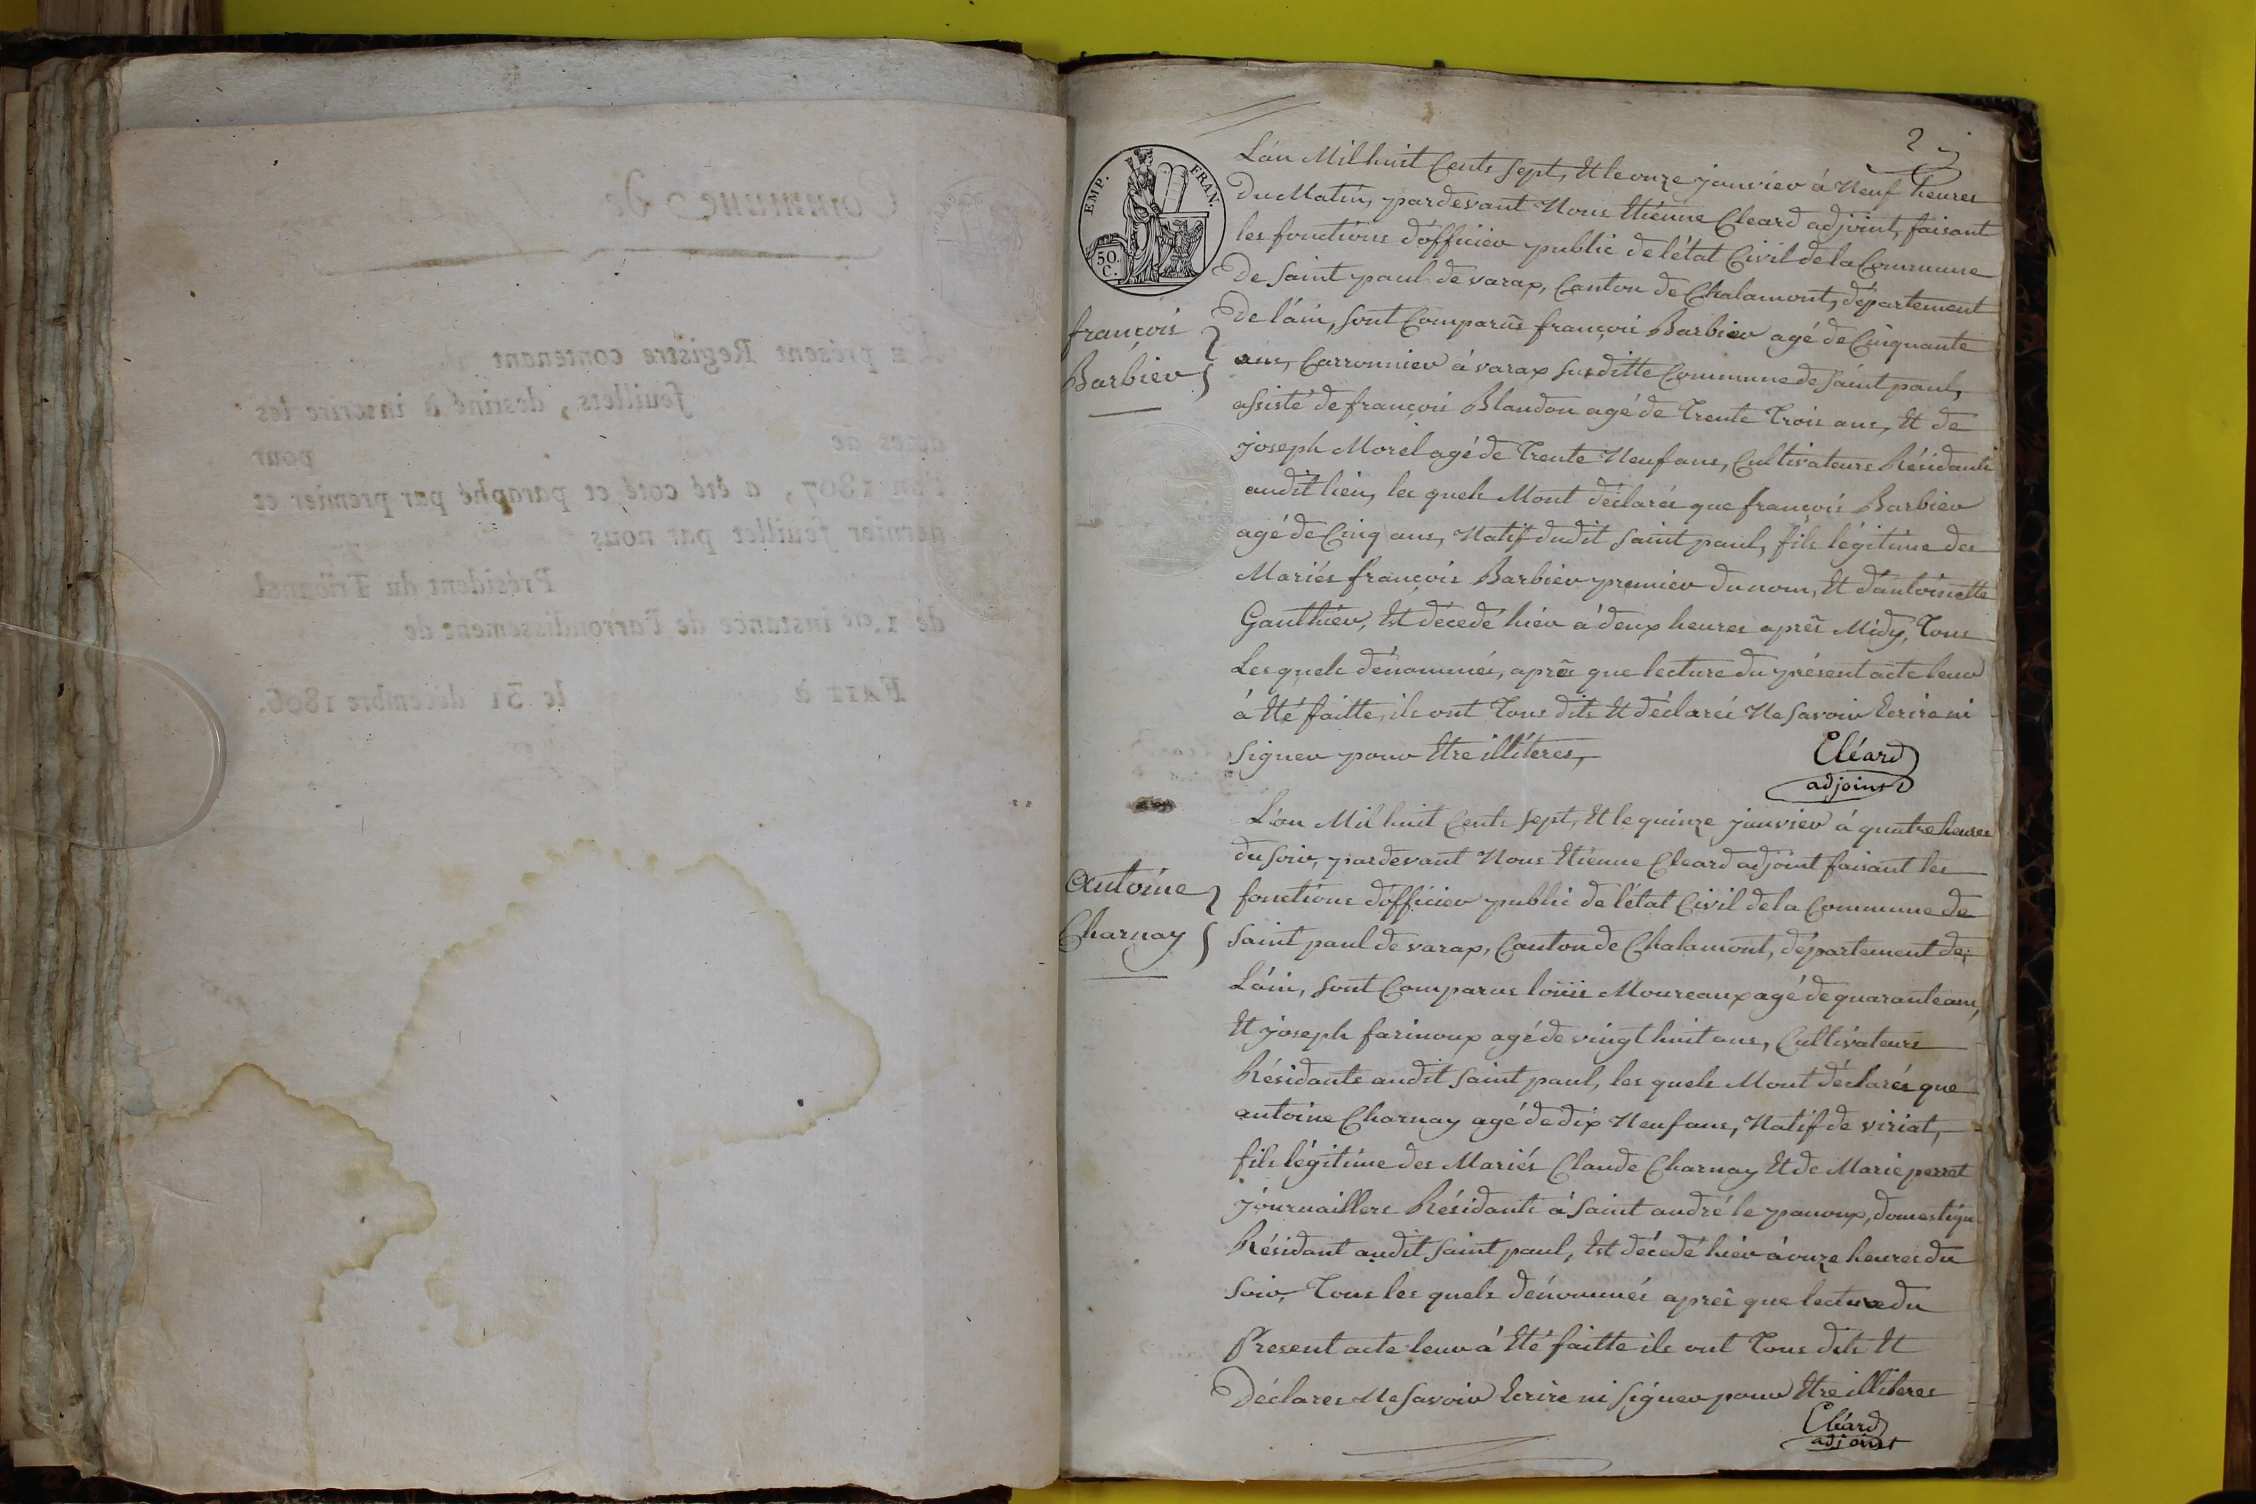 2
EMP. FRAN.
50.
C.
L'an Mil huit Cents sept, Et le onze janvier à Neuf heures
Du Matin, pardevant Nous Etienne Cleard adjoint, faisant
les fonctions d'officier public de l'état Civil de la Commune
De saint paul de varax, Canton de Chalamont, département
De l'ain, sont Comparus françois Barbier agé de Cinquante
ans, Carronnier à varax susditte Commune de saint paul,
assisté de françois Blandon agé de Trente Trois ans, Et de
joseph Morel agé de Trente Neuf ans, Cultivateurs Résidants
audit lieu, les quels M'ont déclarés que françois Barbier
agé de Cinq ans, Natif dudit saint paul, fils légitime des
Mariés françois Barbier premier du nom, Et d'antoinette
Gauthier, Est décedé hier à deux heures après Midy, Tous
Les quels dénommés, après que lecture du présent acte leur
à Eté faitte, ils ont Tous dits Et déclarés Ne savoir Ecrire ni
signer pour Etre illiteres,
Cléard
adjoint
françois
Barbier
L'an Mil huit Cents sept, Et le quinze janvier à quatre heures
du soir, pardevant Nous Etienne Cleard adjoint faisant les
fonctions d'officier public de l'état Civil de la Commune de
saint paul de varax, Canton de Chalamont, département de
L'ain, sont Comparus loüis Moureaux agé de quarante ans,
Et joseph farinoux agé de vingt huit ans, Cultivateurs
Résidants audit saint paul, les quels M'ont déclarés que
antoine Charnay agé de dix Neuf ans, Natif de viriat,
fils légitime des Mariés Claude Charnay Et de Marie perret
journaillers Résidants à saint andré le panoux, domestique
Résidant audit saint paul, Est décedé hier à onze heures du
soir, Tous les quels dénommés après que lecture du
Present acte leur à Eté faitte ils ont Tous dits Et
Déclares Ne savoir Ecrire ni signer pour Etre illiteres
Cléard
adjoint
antoine
Charnay
Commune de
Le présent Registre contenant
feuillets, destiné à inscrire les
actes de pour
l'an 1807, a été coté et paraphé par premier et
dernier feuillet par nous
Président du Tribunal
de 1.ere instance de l'arrondissement de
FAIT à le 31 décembre 1806.